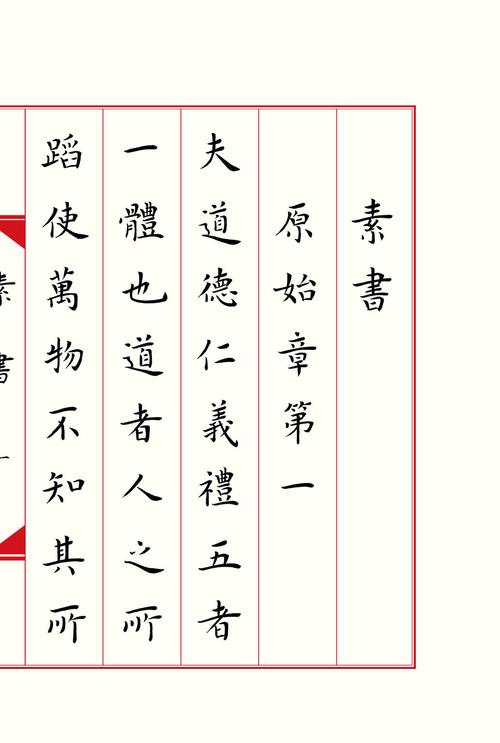 素書
原始章第一
夫道德仁義禮五者
一體也道者人之所
蹈使萬物不知其所
素書 一